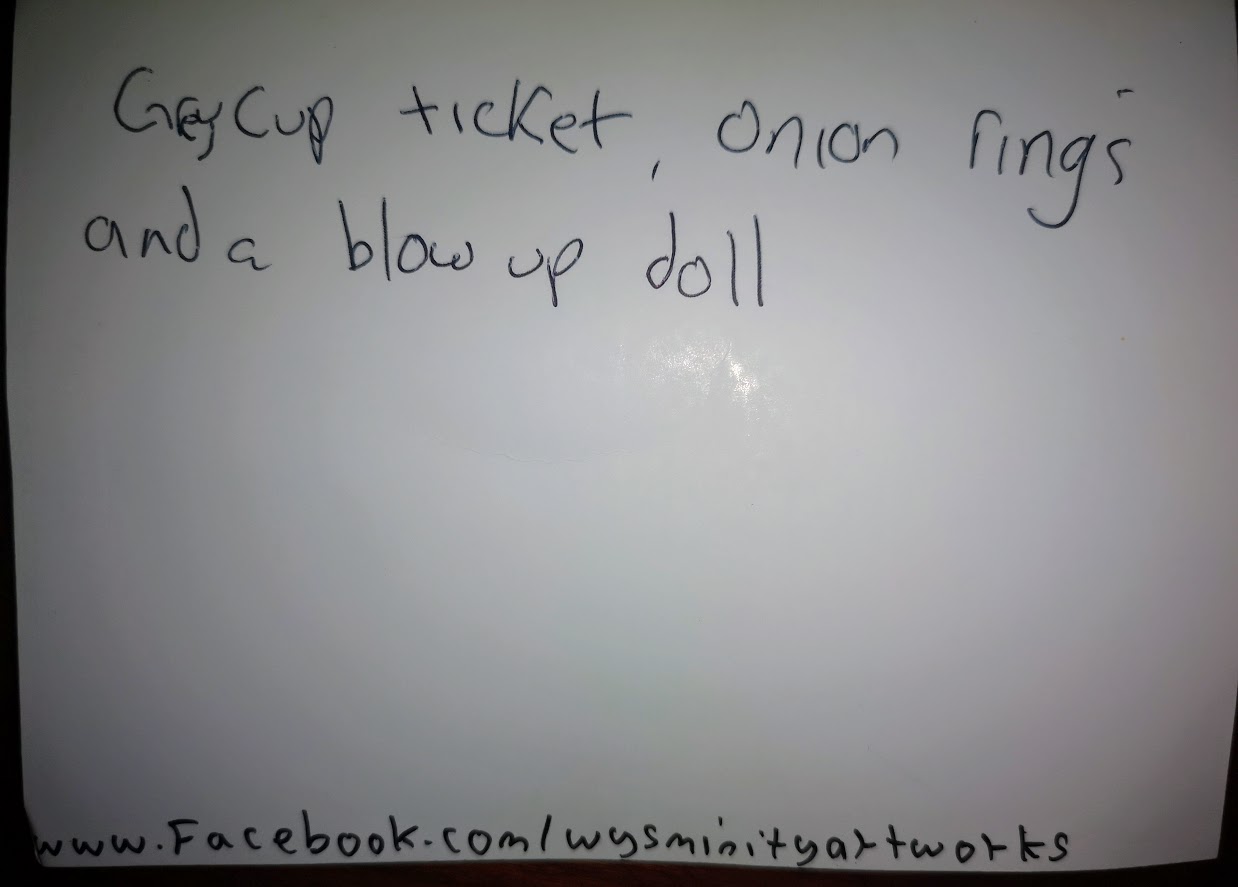 GreyCup ticket, onion rings
and a blow up doll
www.Facebook.com/wysminityartworks